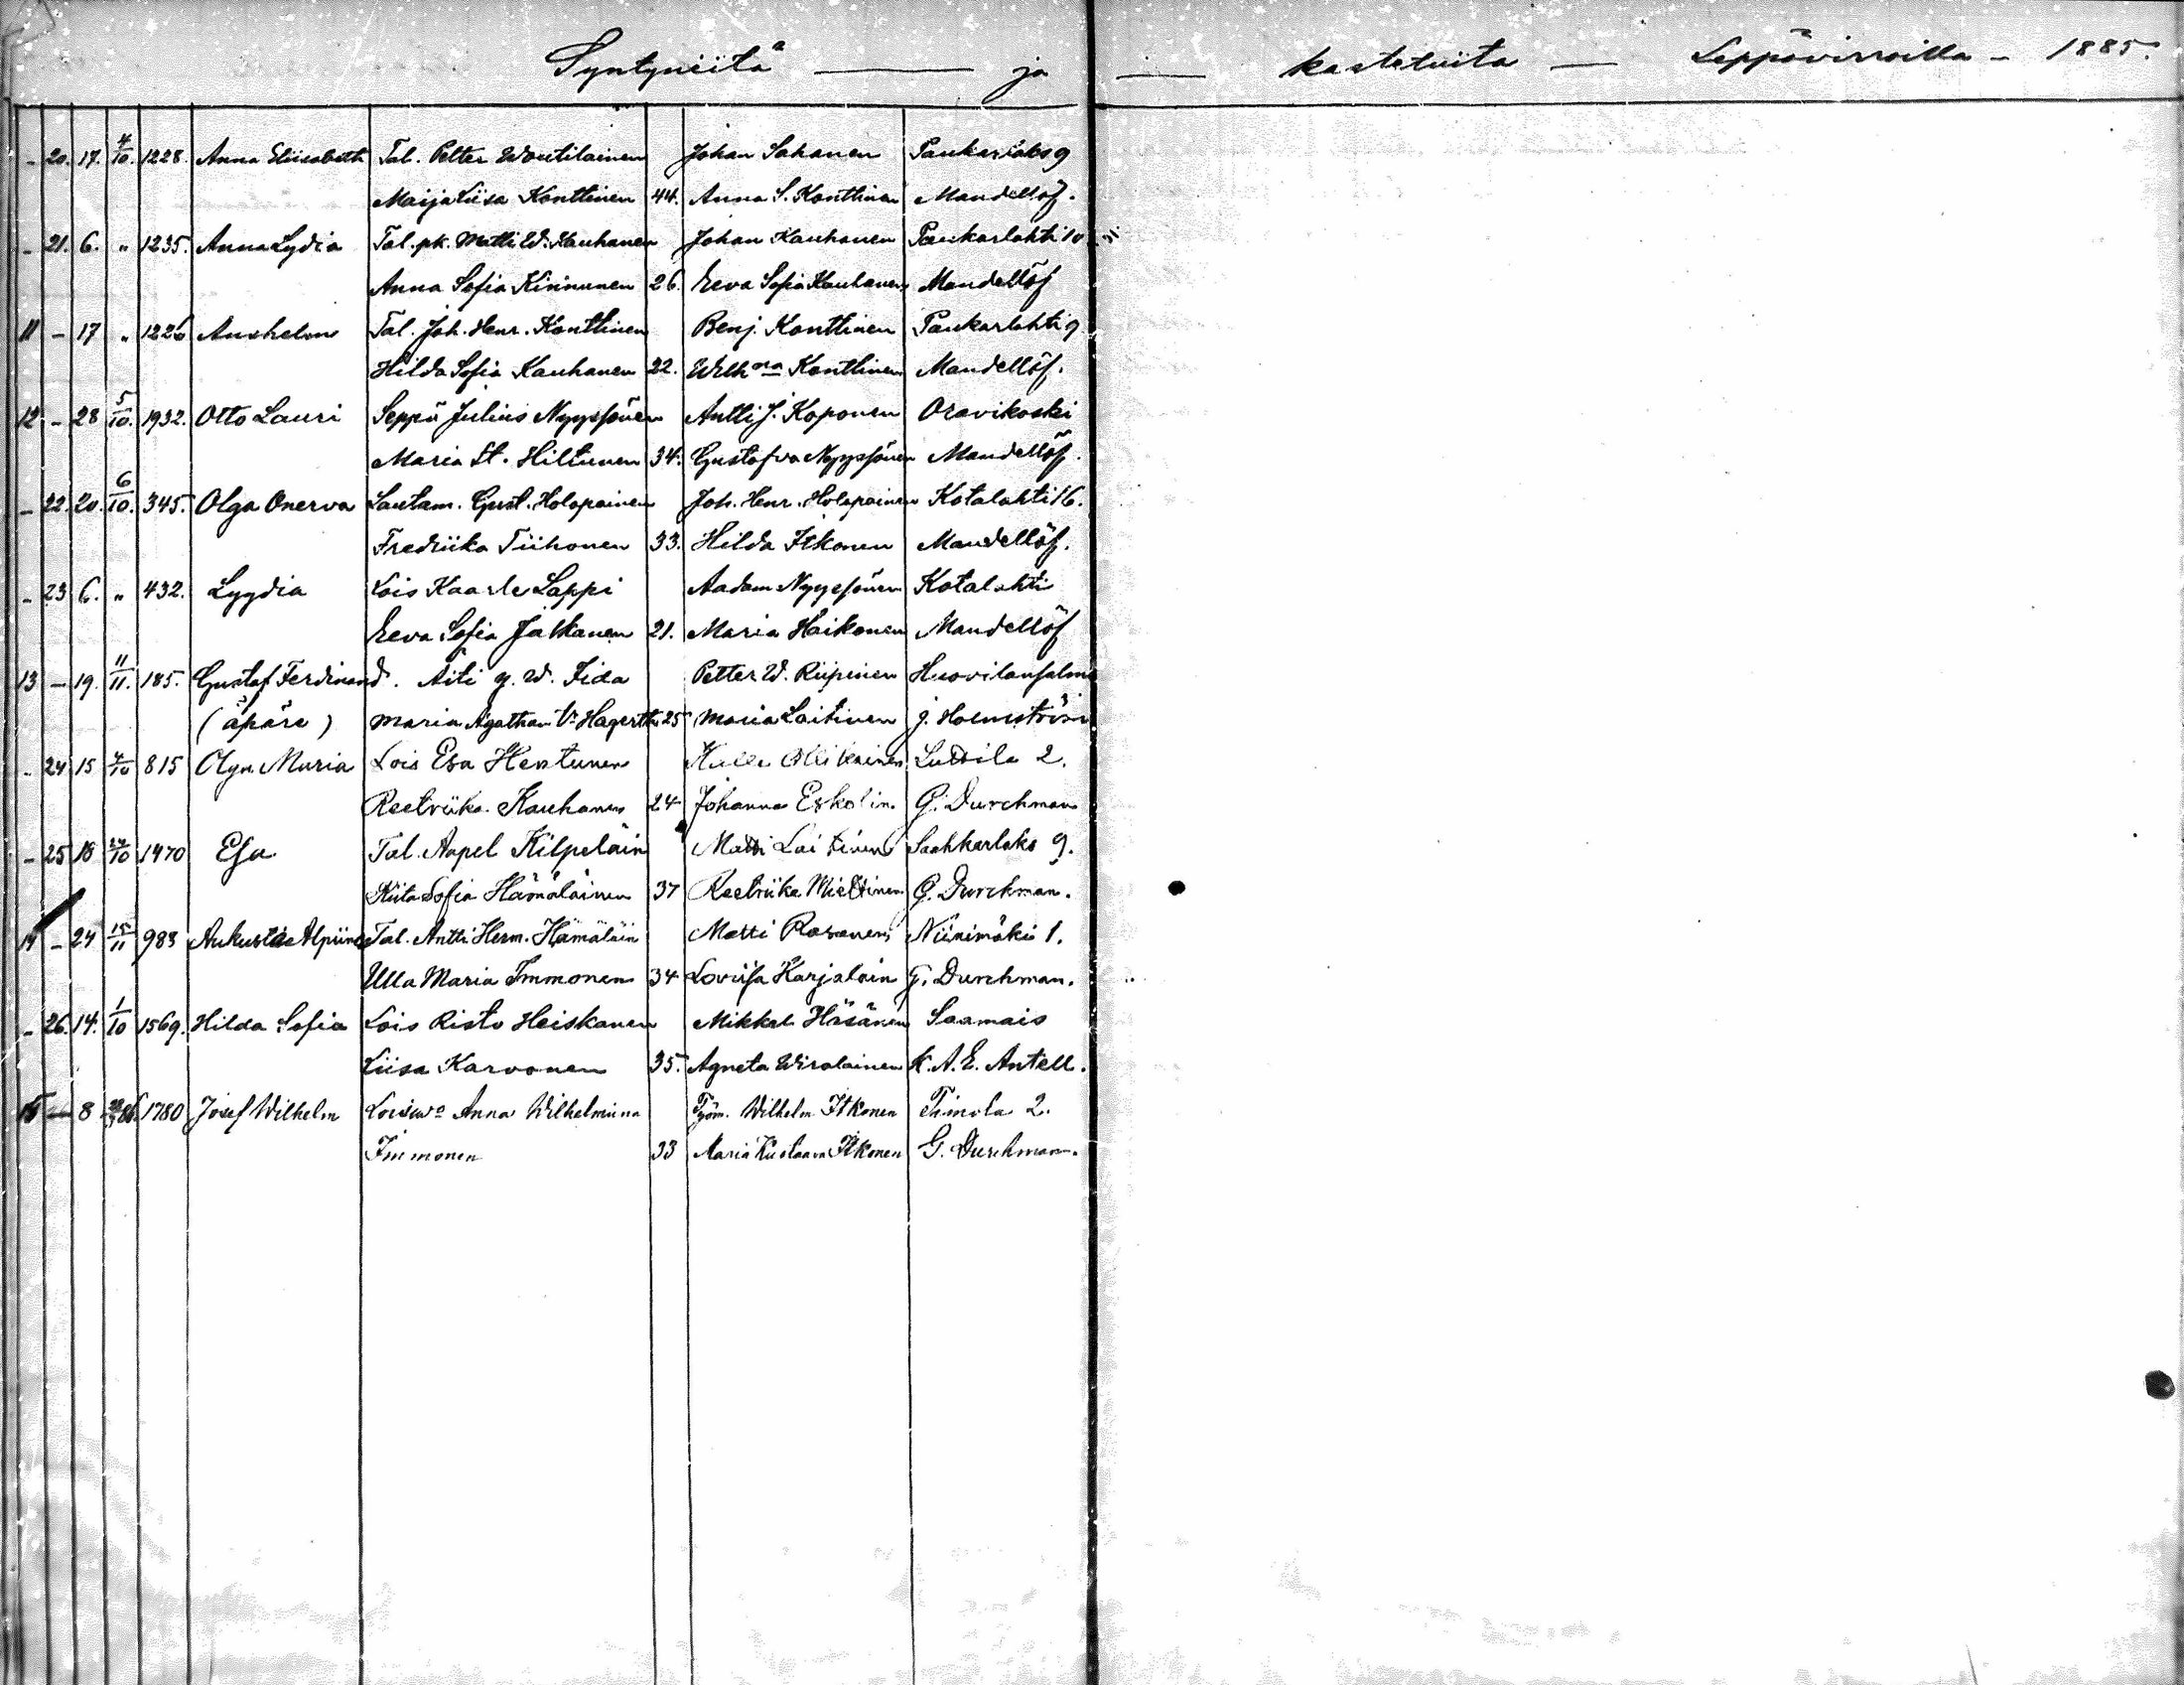 Syntyneitä — ja — kastetuita — Leppävirroilla - 1885.
- 20. 17. 4/10. 1228. Anna Eliisabeth Tal. Petter Woutilainen Johan Sahanen Paukarlaks 9
Maija Liisa Konttinen 44. Anna S. Konttinen Mandellöf.
- 21. 6. " 1235. Anna Lydia Tal. pk. Matti W. Kauhanen Johan Kauhanen Paukarlahti 10
Anna Sofia Kinnunen 26. Eeva Sofia Kauhanen Mandellöf
11 - 17 " 1226 Anshelm Tal. Joh. Henr. Konttinen Benj. Konttinen Paukarlahti 9
Hilda Sofia Kauhanen 22. Wilhna Konttinen Mandellöf.
12 - 28 5/10. 1932. Otto Lauri Seppä Julius Nyyssönen Antti J. Koponen Oravikoski
Maria St. Hiltunen 34. Gustafva Nyyssönen Mandellöf.
- 22. 20. 6/10. 345. Olga Onerva Lautam. Gust. Holopainen Joh. Henr. Holopainen Kotalahti 16.
Fredriika Tiihonen 33. Hilda Itkonen Mandellöf.
- 23 6. " 432. Lyydia Lois Kaarle Lappi Aadam Nyyssönen Kotalahti
Eeva Sofia Jalkanen 21. Maria Haikonen Mandellöf
13 - 19. 11/11. 185. Gustaf Ferdinand. Äiti g. W. Iida Petter W. Riipinen Huovilansalmi
(äpäre) Maria Agathan Vr Hagerth 25 Maria Laitinen J. Holmström
- 24 15 4/10 815 Olga Maria Lois Esa Hentunen Kalle Ollikainen Luttila 2.
Reetriika Kauhanen 24 Johanna Eskolin. G. Durchman
- 25 18 24/10 1470 Esa Tal. Aapel Kilpeläin Matti Laitinen Saahkarlaks 9.
Riita Sofia Hämäläinen 37 Reetriika Miettinen G. Durchman.
14 - 24 15/11 983 Aukusti Alpiinus Tal. Antti Herm. Hämäläin Matti Rosonen Niinimäki 1.
Ulla Maria Immonen 34 Loviisa Karjalain G. Durchman.
- 26. 14. 1/10 1569. Hilda Sofia Lois Risto Heiskanen Mikkel Häsänen Saamais
Liisa Karvonen 35. Agneta Wirolainen K. A. E. Antell.
15 - 8 1780 Josef Wilhelm Loisvo Anna Wilhelmiina Työm. Wilhelm Itkonen Timola 2.
Immonen 33 Maria Kustaava Itkonen G. Durchman.